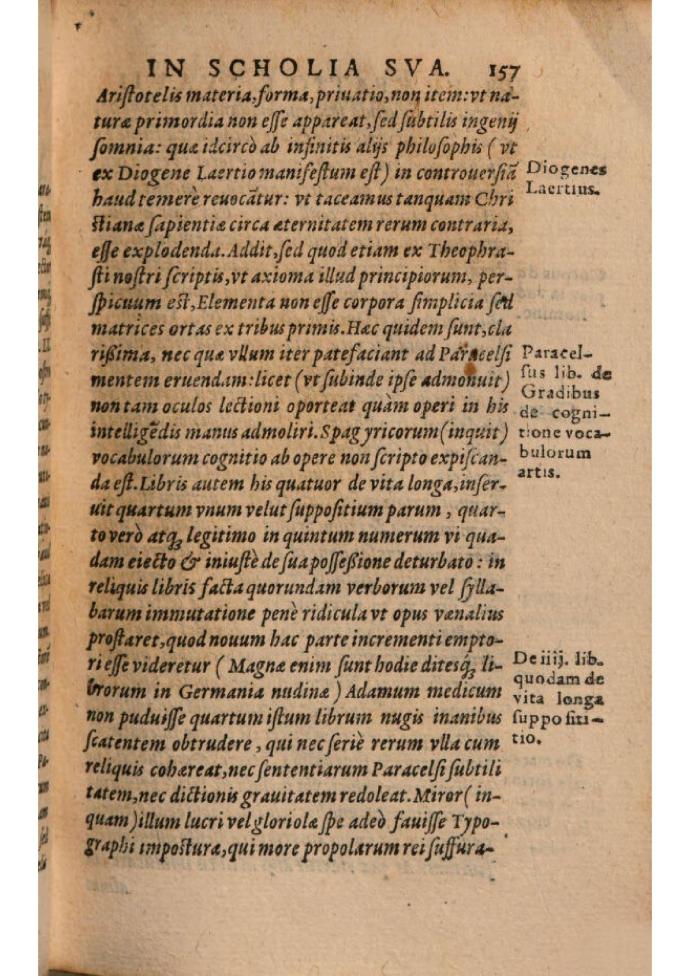 IN SCHOLIA SVA. 157
Ariſtotelis materia, forma, priuatio, non item: vt na-
turæ primordia non eſſe appareat, ſed ſubtilis ingenij
ſomnia: quæ idcircò ab infinitis alijs philoſophis ( vt
ex Diogene Laertio manifeſtum eſt ) in controuerſiã
haud temerè reuocãtur: vt taceamus tanquam Chri
ſtianæ ſapientiæ circa æternitatem rerum contraria,
eſſe explodenda. Addit, ſed quod etiam ex Theophra-
ſti noſtri ſcriptis, vt axioma illud principiorum, per-
ſpicuum eſt, Elementa non eſſe corpora ſimplicia ſed
matrices ortas ex tribus primis. Hæc quidem ſunt, cla
rißima, nec quæ vllum iter patefaciant ad Paracelſi
mentem eruendam: licet ( vt ſubinde ipſe admonuit )
non tam oculos lectioni oporteat quàm operi in his
intelligẽdis manus admoliri. Spagyricorum ( inquit )
vocabulorum cognitio ab opere non ſcripto expiſcan-
da eſt. Libris autem his quatuor de vita longa, inſer-
uit quartum vnum velut ſuppoſitium parum, quar-
to verò atq́; legitimo in quintum numerum vi qua-
dam eiecto & iniuſtè de ſua poſſeßione deturbato : in
reliquis libris facta quorundam verborum vel ſylla-
barum immutatione penè ridicula vt opus vænalius
proſtaret, quod nouum hac parte incrementi empto-
ri eſſe videretur ( Magnæ enim ſunt hodie ditesq́; li-
brorum in Germania nudinæ ) Adamum medicum
non puduiſſe quartum iſtum librum nugis inanibus
ſcatentem obtrudere, qui nec ſeriè rerum vlla cum
reliquis cohæreat, nec ſententiarum Paracelſi ſubtili
tatem, nec dictionis grauitatem redoleat. Miror ( in-
quam ) illum lucri vel gloriolæ ſpe adeò fauiſſe Typo-
graphi impoſturæ, qui more propolarum rei ſuffura-
Diogenes
Laertius.
Paracel-
ſus lib. de
Gradibus
de cogni-
tione voca-
bulorum
artis.
De iiij. lib.
quodam de
vita longa
ſuppoſiti-
tio.